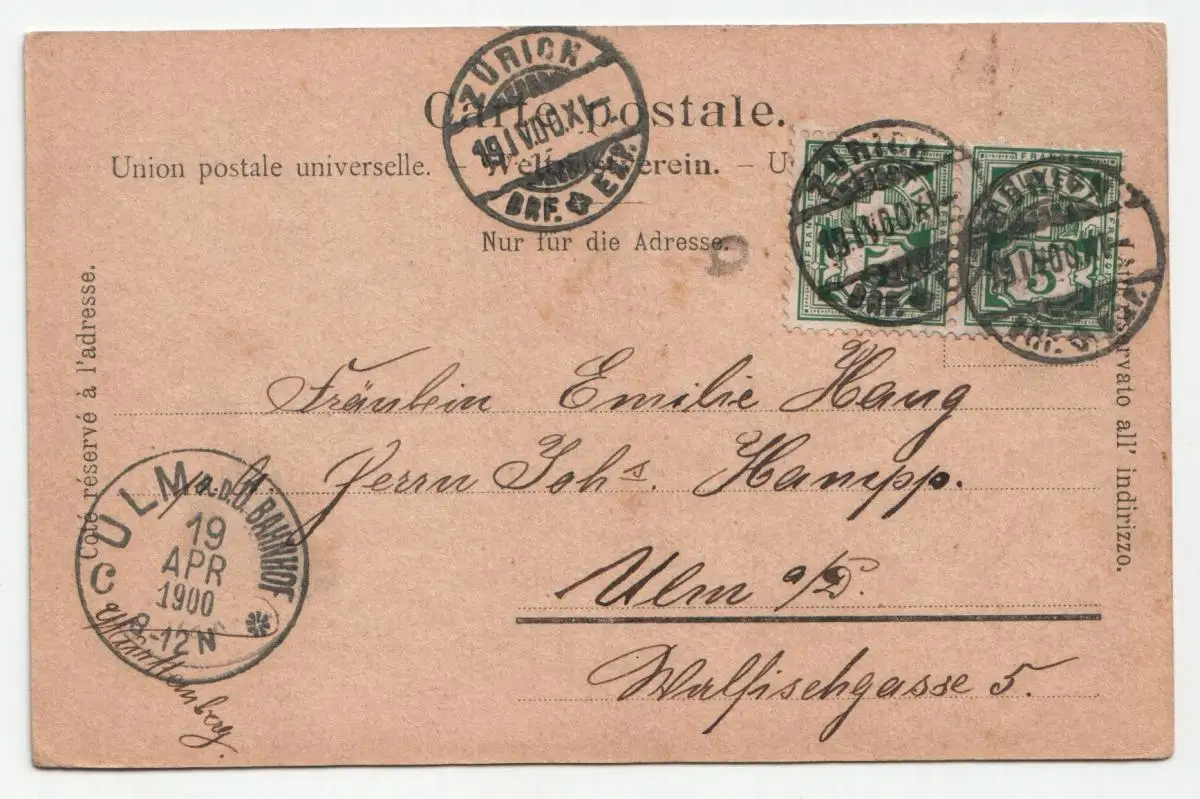 Carte postale.
Union postale universelle. – Weltpostverein. – U
Nur für die Adresse.
Coté réservé à l'adresse.
Lato riservato all' indirizzo.
ZÜRICH
19.IV.00.XI–
BRF. EXP.
ZÜRICH
19.IV.00.XI–
BRF.
FRANCO
HELVETIA
5
5
19.IV.00.XI
Fräulein Emilie Haug
p/A. Herrn Johs. Hampp.
Ulm a/D.
Walfischgasse 5.
Württemberg
ULM A.D.D. BAHNHOF
19
APR
1900
8-12 N
C